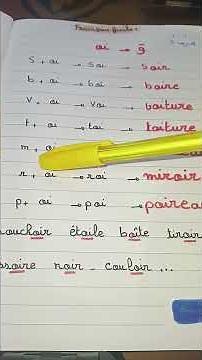 oi →
s + oi → soi → soir
b + oi → boi → boire
v + oi → voi → voiture
t + oi → toi → toiture
m +
r + oi → roi → miroir
p + oi → poi → poirea
ouchoir étoile boîte tiroir
noir - couloir ...